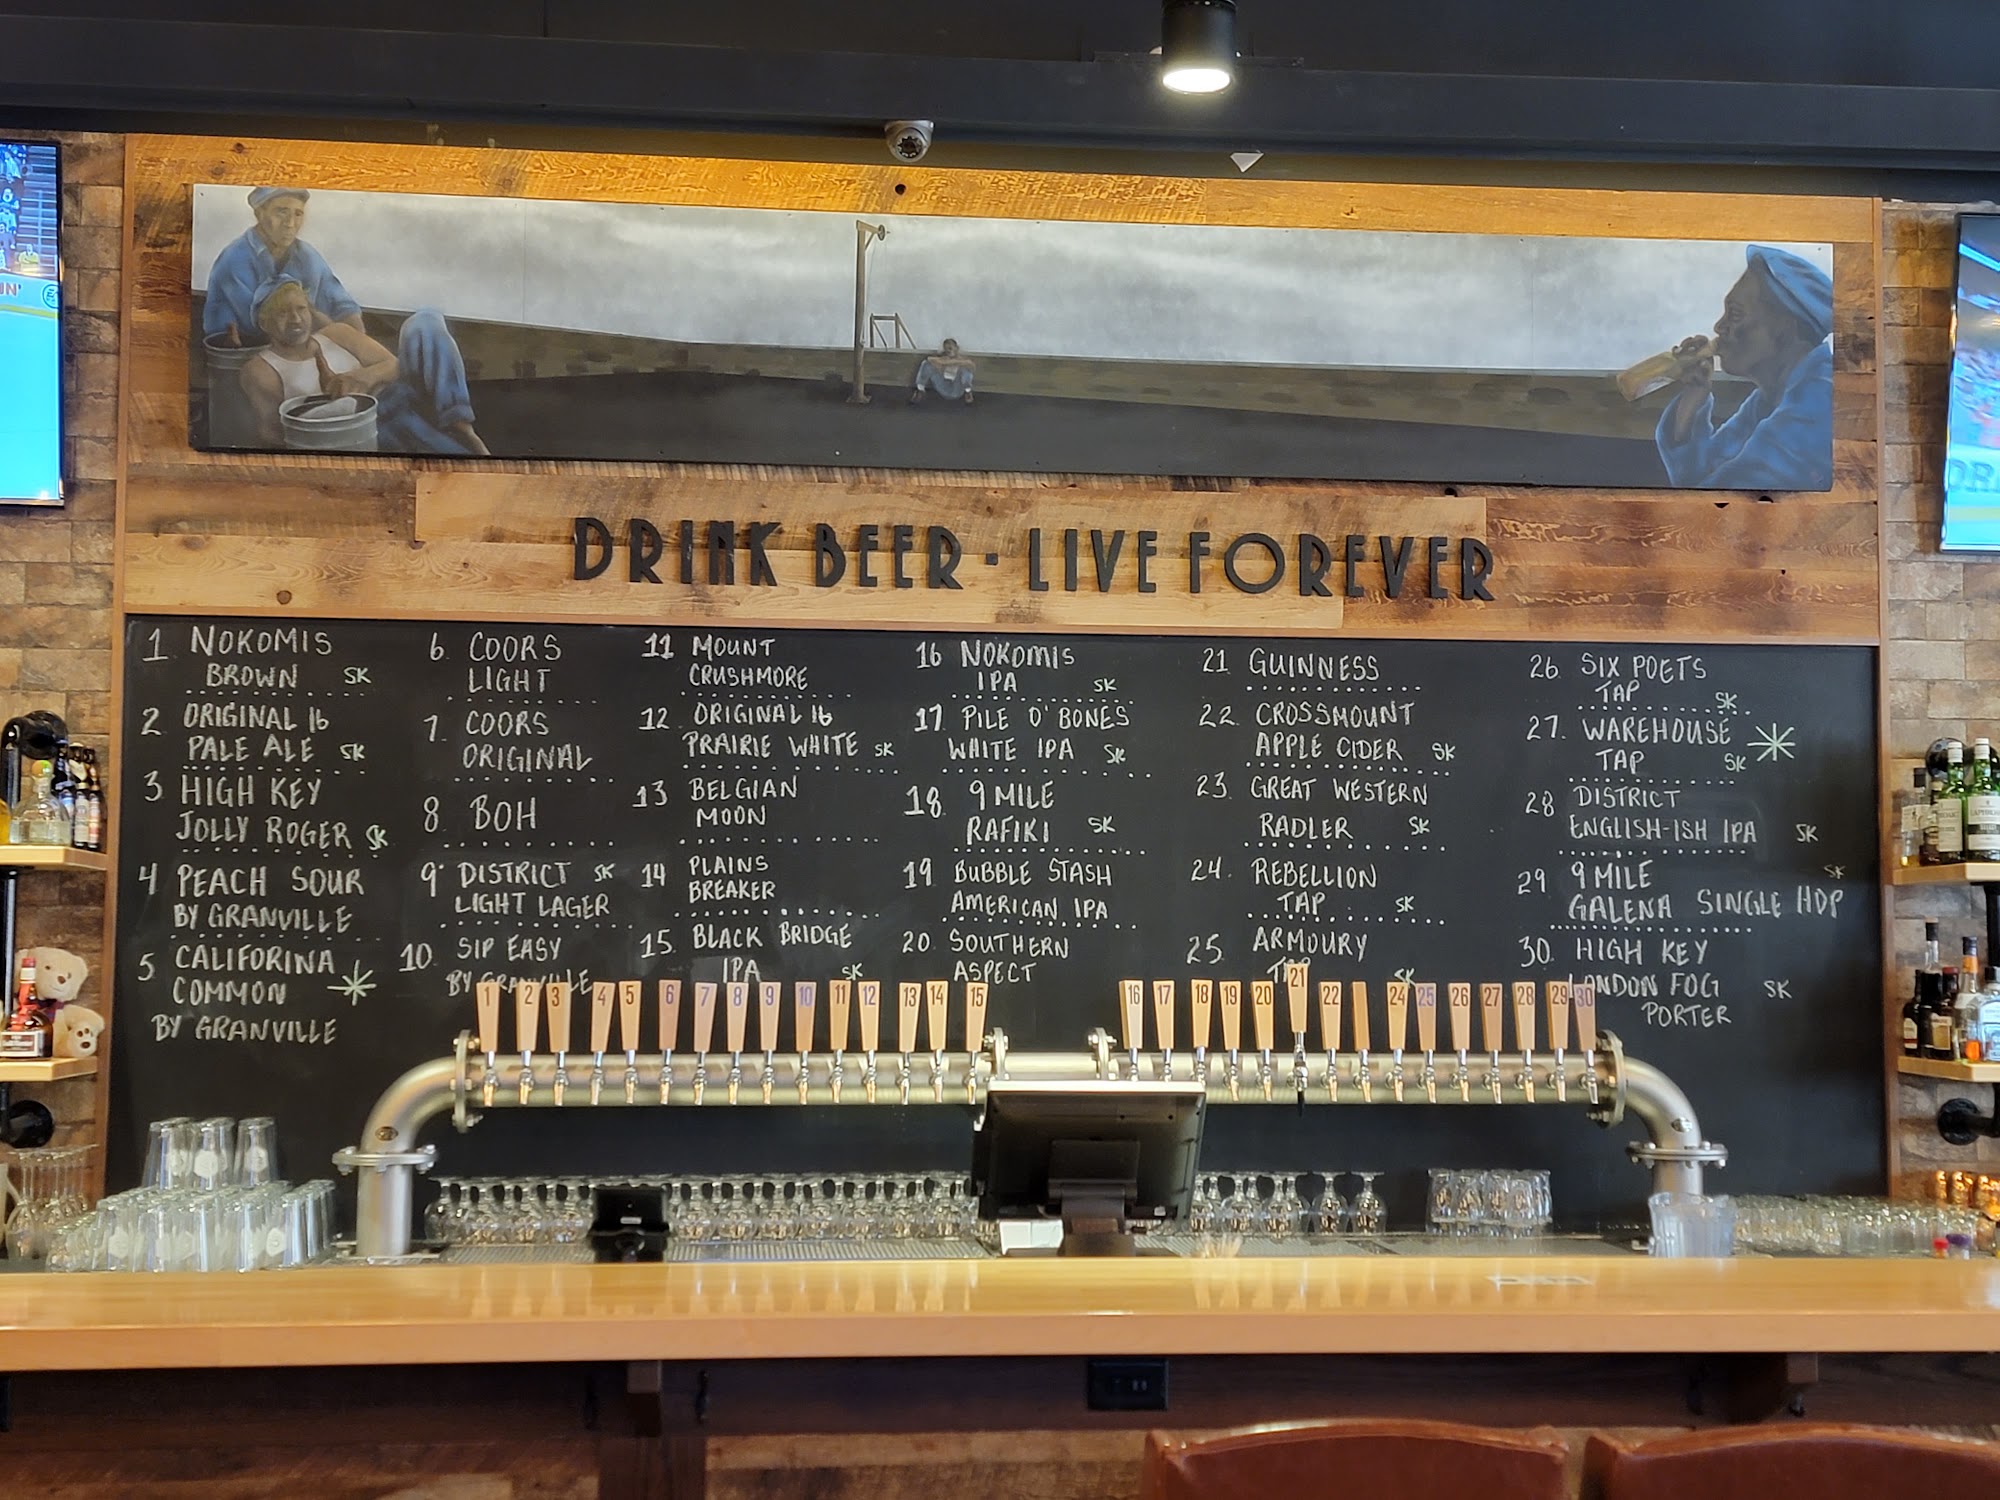 DRINK BEER · LIVE FOREVER
1 NOKOMIS
BROWN SK
2 ORIGINAL 16
PALE ALE SK
3 HIGH KEY
JOLLY ROGER SK
4 PEACH SOUR
BY GRANVILLE
5 CALIFORINA
COMMON
BY GRANVILLE
6 COORS
LIGHT
7. COORS
ORIGINAL
8. BOH
9. DISTRICT SK
LIGHT LAGER
10. SIP EASY
BY GRANVILLE
11 MOUNT
CRUSHMORE
12 ORIGINAL 16
PRAIRIE WHITE SK
13 BELGIAN
MOON
14 PLAINS
BREAKER
15. BLACK BRIDGE
IPA SK
16 NOKOMIS
IPA SK
17. PILE O' BONES
WHITE IPA SK
18. 9 MILE
RAFIKI SK
19 BUBBLE STASH
AMERICAN IPA
20. SOUTHERN
ASPECT
21. GUINNESS
22. CROSSMOUNT
APPLE CIDER SK
23. GREAT WESTERN
RADLER SK
24. REBELLION
TAP SK
25. ARMOURY
TAP SK
26. SIX POETS
TAP SK
27. WAREHOUSE
TAP SK
28 DISTRICT
ENGLISH-ISH IPA SK
29 9 MILE SK
GALENA SINGLE HOP
30. HIGH KEY
LONDON FOG SK
PORTER
1 2 3 4 5 6 7 8 9 10 11 12 13 14 15 16 17 18 19 20 21 22 24 25 26 27 28 29 30